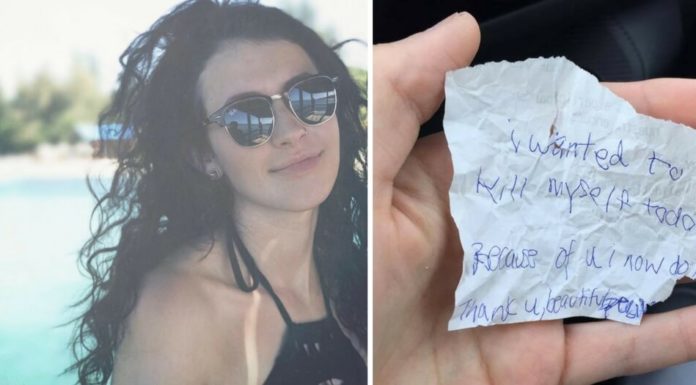 i wanted to
kill myself toda
Because of u i now do
Thank u, beautiful